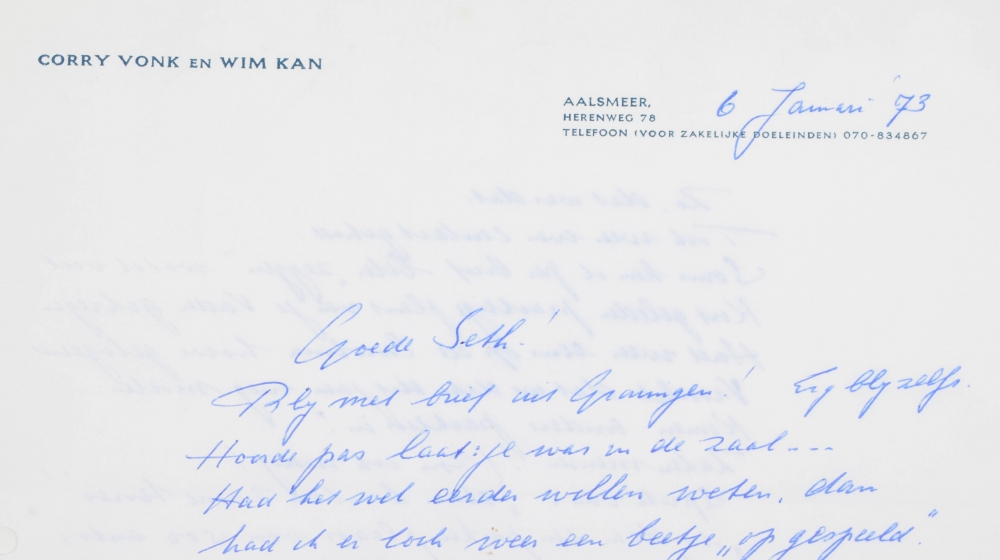 CORRY VONK EN WIM KAN
AALSMEER,
HERENWEG 78
TELEFOON (VOOR ZAKELIJKE DOELEINDEN) 070-834867
6 Januari '73
Goede Seth!
Blij met brief uit Groningen! Erg blij zelfs.
Hoorde pas laat: je was in de zaal ---
Had het wel eerder willen weten, dan
had ik er toch weer een beetje „op gespeeld"